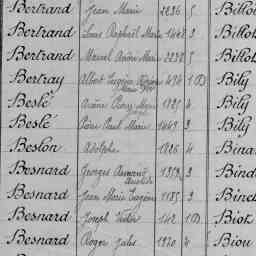 Bertrand Jean Marie 2296 5 Billot
Bertrand Louis Raphaël Marie 1448 3 Billot
Bertrand Marcel André Marie 2238 5 Billot
Bertray Albert Eugène 494 1 D Bily
Beslé Marie 1821 4 Bily
Beslé Pierre Paul Marie 1449 3 Bily
Beslon Adolphe 1826 4 Bina
Besnard Georges Armand 1359 3 Binde
Besnard Jean Marie Eugène 1185 3 Binet
Besnard Joseph Victor 142 1 D Biot
Besnard Roger Jules 1920 4 Biou